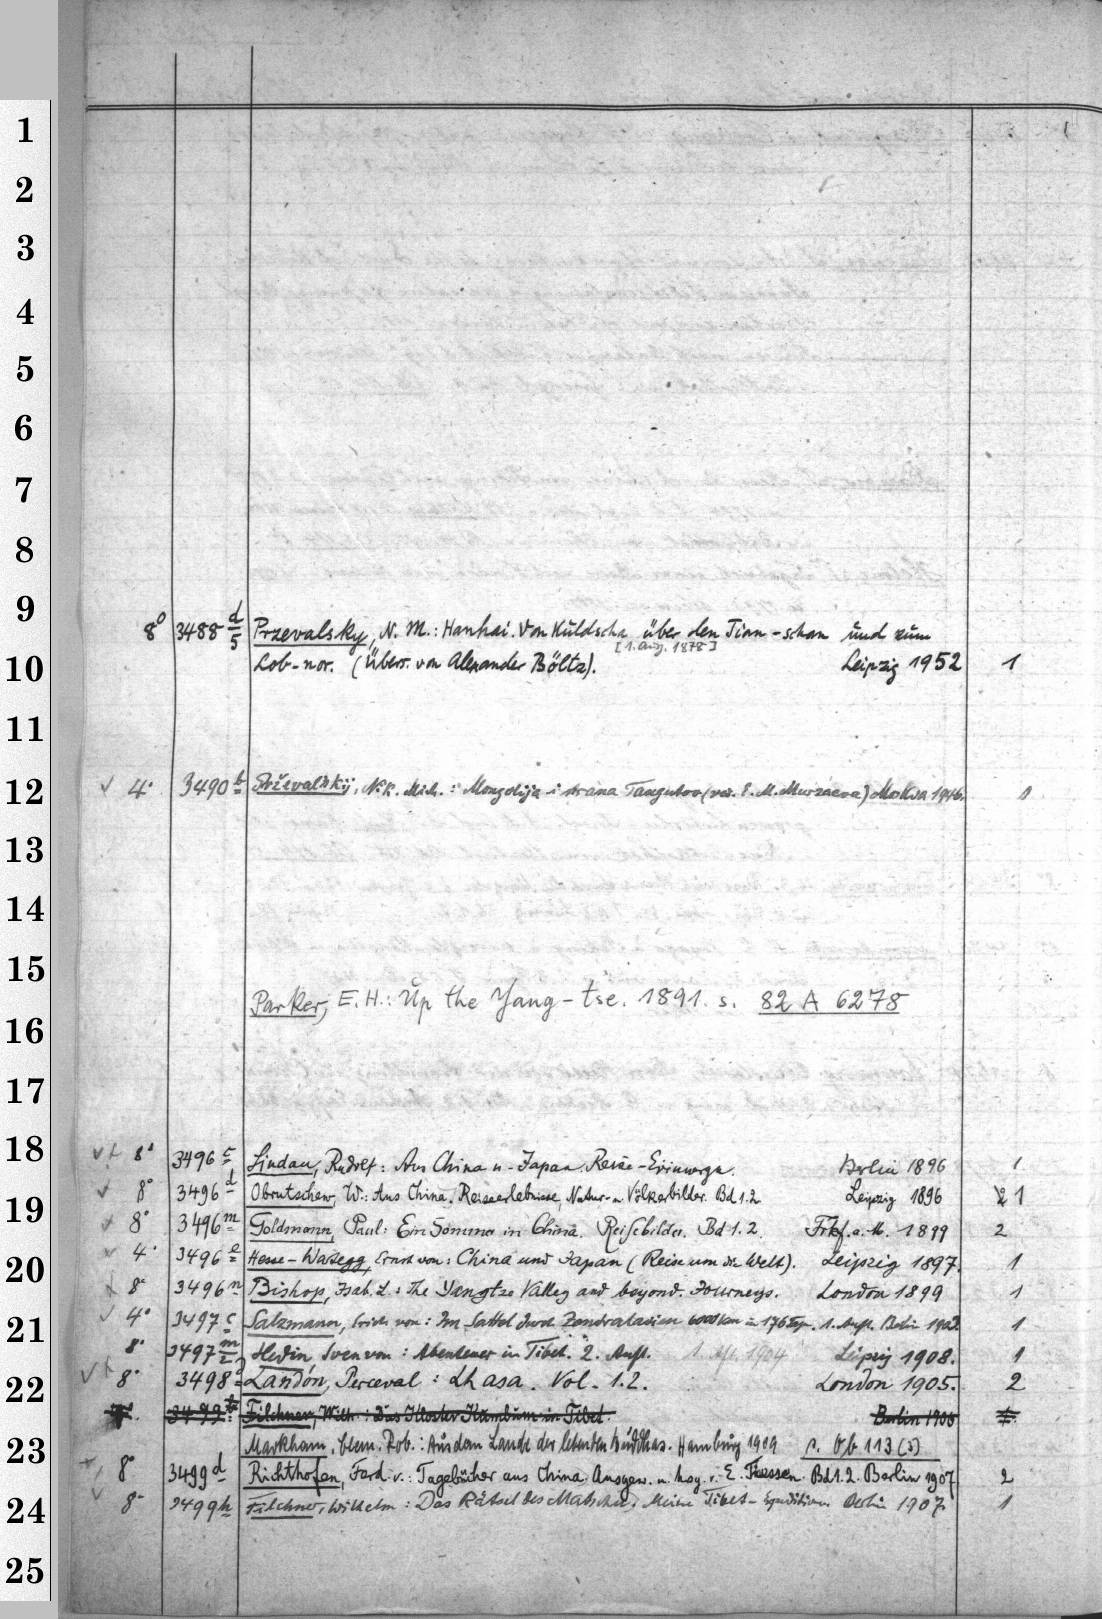 1
2
3
4
5
6
7
8
9
8° 3488 d/5 Przevalsky, N. M.: Hanhai. Von Kuldscha über den Tian-schan und zum
[1. Aufl. 1878]
10
Lob-nor. (Übers. von Alexander Böltz). Leipzig 1952 1
11
12
√ 4° 3490 b Prževal'skij, Nik. Mich.: Mongolija i strana Tangutov (red. E. M. Murzaeva) Moskva 1946. 1
13
14
15
Parker, E. H.: Up the Yang-tse. 1891. s. 82 A 6278
16
17
18
√ 8° 3496 c Lindau, Rudolf: Aus China u. Japan. Reise-Erinnergn. Berlin 1896 1
√ 8° 3496 d Obrutschew, W.: Aus China. Reiseerlebnisse, Natur- u. Völkerbilder. Bd 1.2 Leipzig 1896 2 1
19
8° 3496 m Goldmann, Paul: Ein Sommer in China. Reisebilder. Bd 1.2. Frkf. a. M. 1899 2
√ 4° 3496 e Hesse-Wartegg, Ernst von: China und Japan (Reise um die Welt). Leipzig 1897. 1
20
8° 3496 n Bishop, Isab. L.: The Yangtze Valley and beyond. Journeys. London 1899 1
√ 4° 3497 c Salzmann, Erich von: Im Sattel durch Zentralasien 6000 km in 176 Tgn. 1. Aufl. Berlin 1903. 1
21
8° 3497 m/2 Hedin, Sven von: Abenteuer in Tibet. 2. Aufl. 1. Afl. 1904 Leipzig 1908. 1
√ 8° 3498 Landon, Perceval: Lhasa. Vol. 1.2. London 1905. 2
22
3499 b Filchner, Wilh.: Das Kloster Kumbum in Tibet. Berlin 1906
Markham, Clem. Rob.: Aus dem Lande der lebenden Buddhas. Hamburg 1909 s. Ob 113 (3)
23
8° 3499 d Richthofen, Ferd. v.: Tagebücher aus China. Ausgew. u. hsg. v. E. Tiessen. Bd 1.2. Berlin 1907 2
√ 8° 3499 h Filchner, Wilhelm: Das Rätsel des Matschu. Meine Tibet-Expedition Berlin 1907. 1
24
25